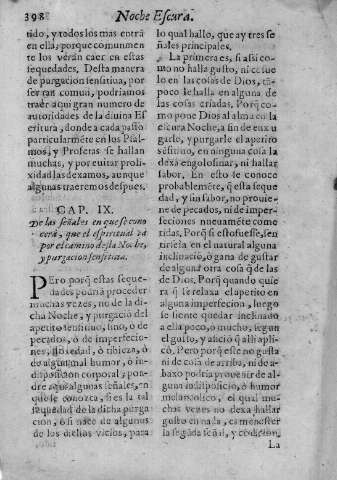 398 Noche Escura.
tido, y todos los mas entrá
en ella; porque comunmen
te los verán caer en estas
sequedades. Desta manera
de purgacion sensitiva, por
ser tan comun, podriamos
traer aqui gran numero de
autoridades de la divina Es
critura, donde a cada passo
particularmẽte en los Psal-
mos, y Profetas se hallan
muchas, y por euitar proli-
xidad las dexamos, aunque
algunas traeremos despues.
CAP. IX.
De las señales en que se cono
cerá, que el espiritual va
por el camino desta Noche,
y purgacion sensitiua.
PEro porq̃ estas seque-
dades podria proceder
muchas vezes, no de la di-
cha Noche, y purgació del
apetito sensitiuo, sino, o de
pecados, ó de imperfecio-
nes, floxedad, o tibieza, ò
de algun mal humor, ò in-
disposicion corporal, pon-
dre aqui algunas señales, en
que se conozca, si es la tal
sequedad de la dicha purga
cion, ò si nace de algunos
de los dichos vicios, para
lo qual hallo, que ay tres se
ñales principales.
La primera es, si assi co-
mo no halla gusto, ni cõsue
lo en las cosas de Dios, tã-
poco le halla en alguna de
las cosas criadas. Porq̃ co-
mo pone Dios al alma en la
escura Noche, a fin de enxu
garle, y purgarle el apetito
sẽsitiuo, en ninguna cosa la
dexa engolosinar, ni hallar
sabor. En esto se conoce
probablemẽte, q̃ esta seque
dad, y sin sabor, no prouie-
ne de pecados, ni de imper-
feciones nueuamẽte come-
tidas. Porq̃ si esto fuesse, sen
tiriala en el natural alguna
inclinació, ò gana de gustar
de alguna otra cosa q̃ de las
de Dios. Porq̃ quando quie
ra q̃ se relaxa el apetito en
alguna imperfecion, luego
se siente quedar inclinado
a ella poco, o mucho, segun
el gusto, y aficiõ q̃ alli apli-
có. Pero porq̃ este no gusta
ni de cosa de arriba, ni de a-
baxo podria prouenir de al-
guna indisposiciõ, ò humor
melancolico, el qual mu-
chas vezes no dexa hallar
gusto en nada, es menester
la segũda señal, y cõdicion.
La